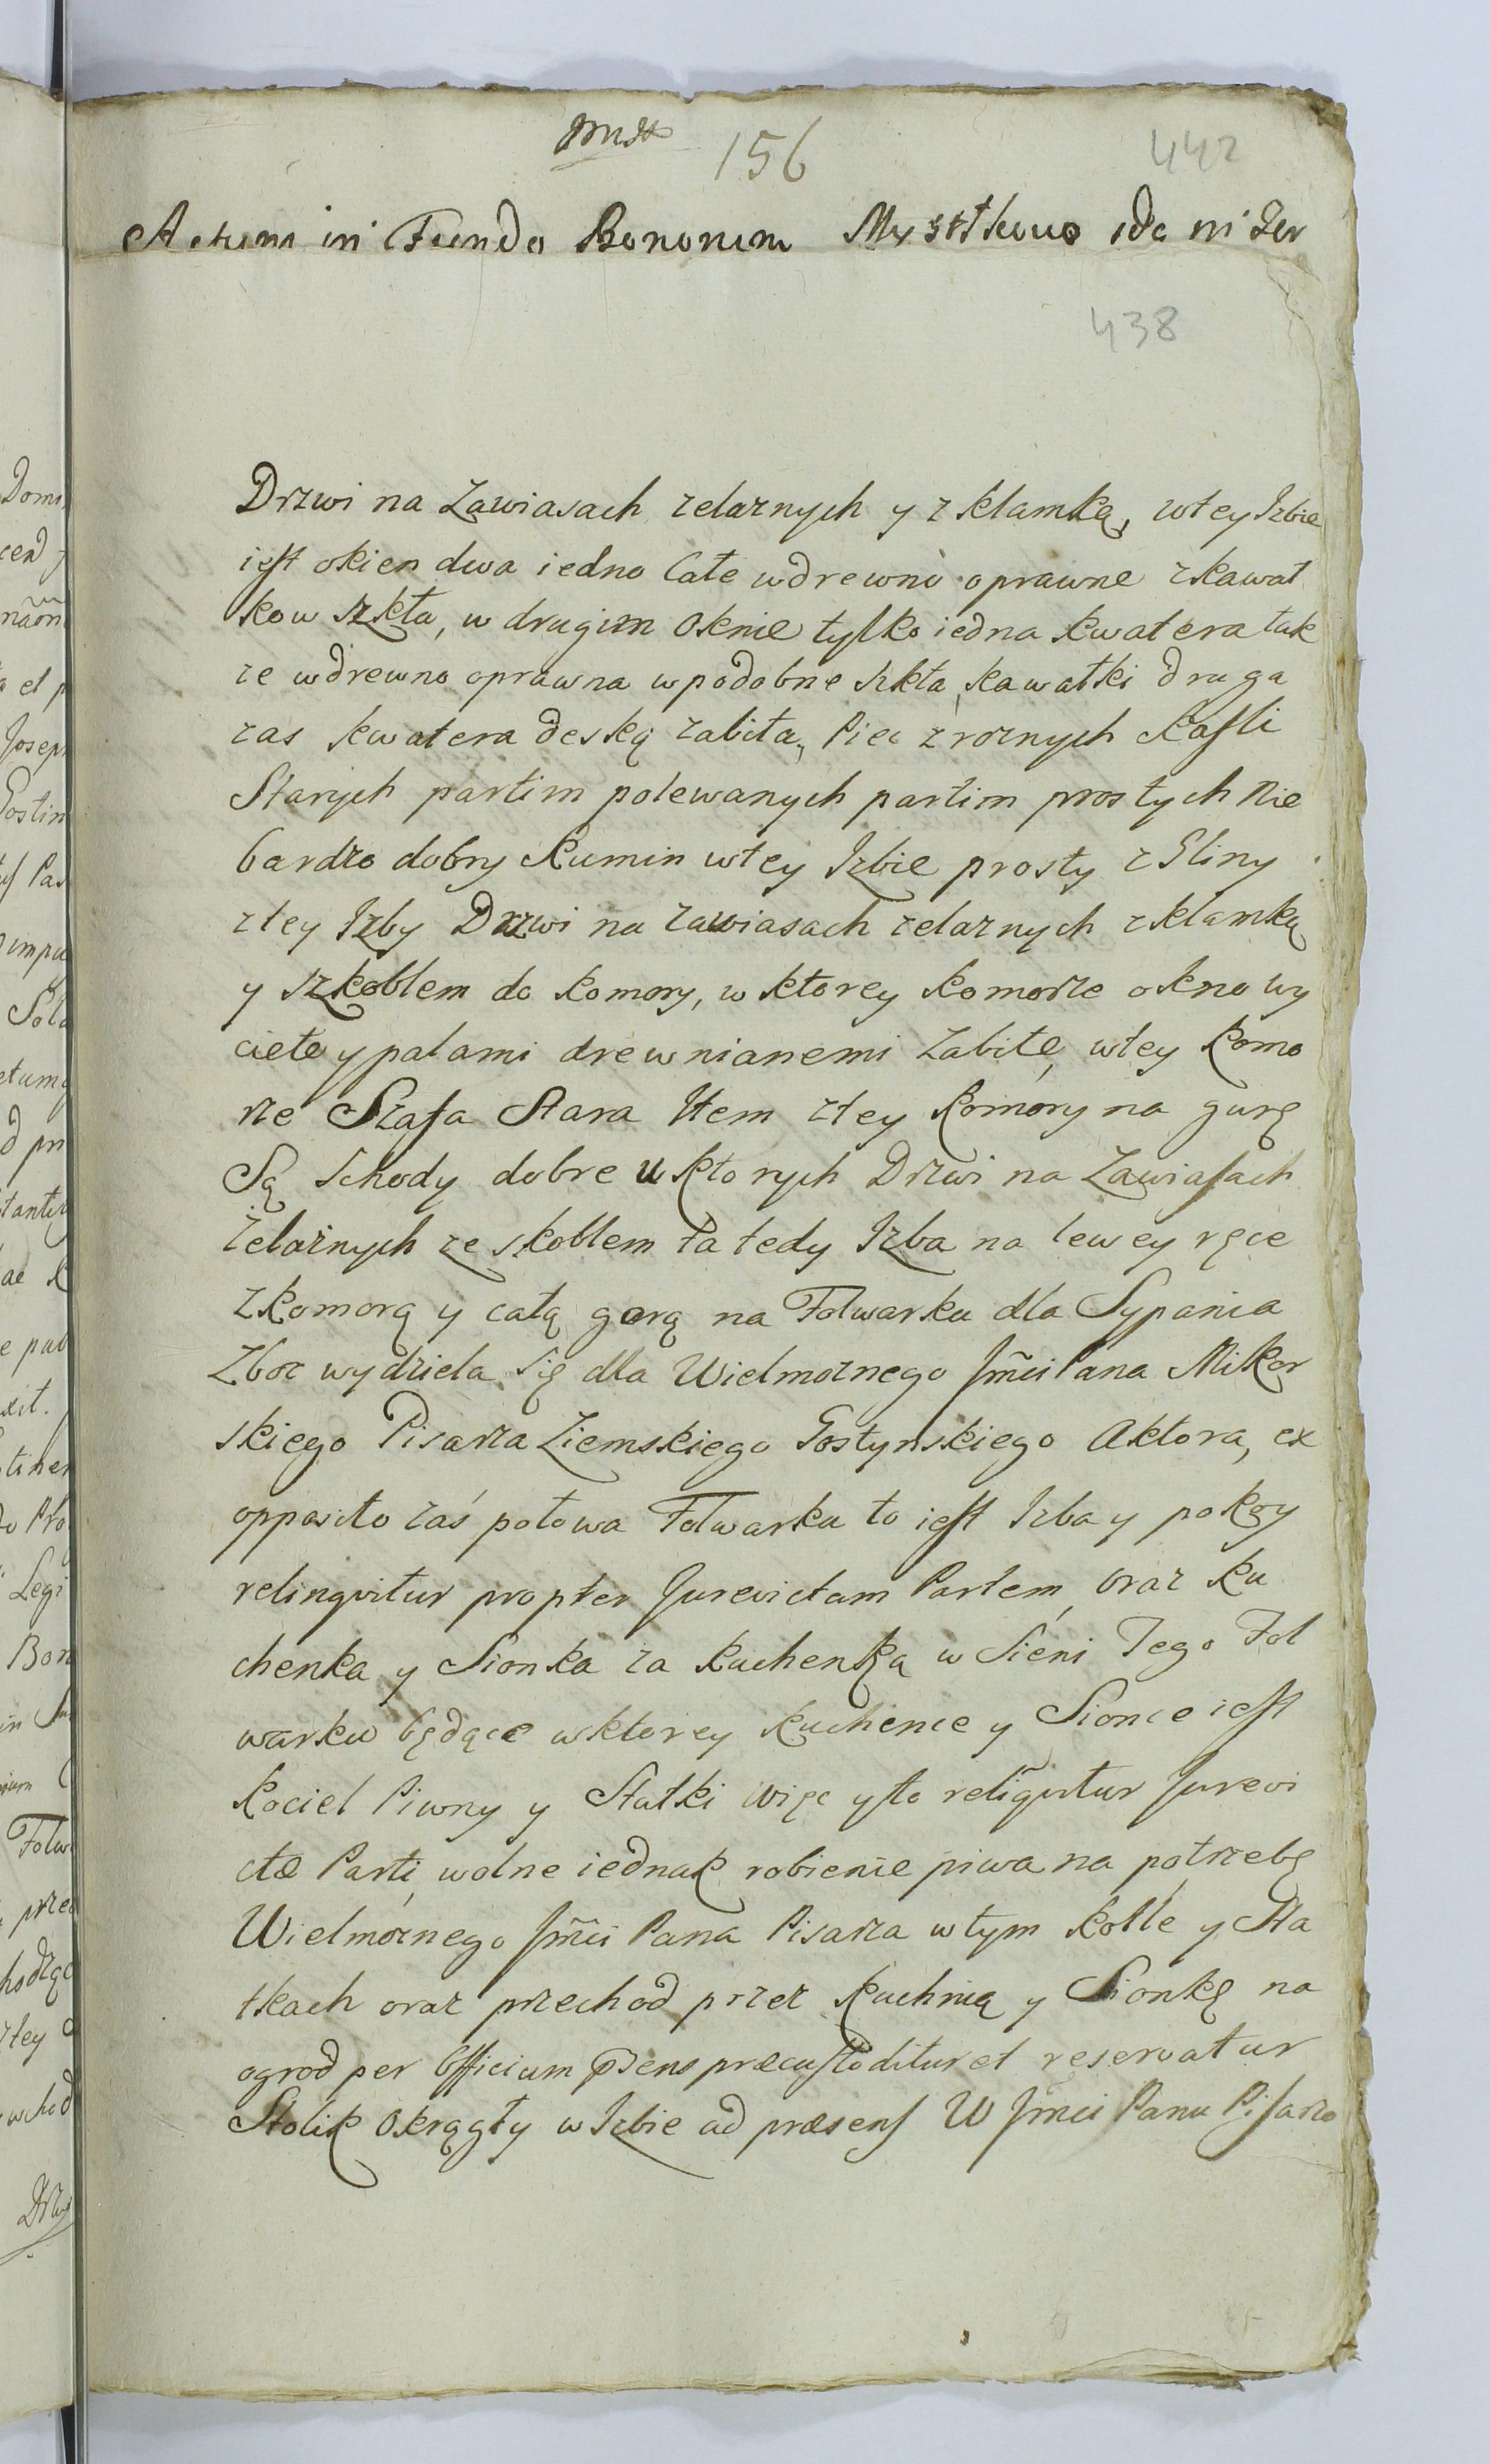 156
442
Actum in Fundo Bonorum
438
Drzwi na Zawiasach zelaznych y z klamką, wtey Izbie
iest okien dwa iedno Całe wdrewno oprawne z kawał
kow szkła, w drugim Oknie tylko iedna kwatera tak
ze wdrewno oprawna w podobne szkła kawałki druga
zas kwatera deską zabita, Piec z roznych Kafli
Starych partim polewanych partim prostych Nie
bardzo dobry Kumin wtey Izbie prosty z Gliny
ztey Izby Drzwi na zawiasach zelaznych z klamką
y szkoblem do Komory, w ktorey Komorze okno wy
cięte y palami drewnianemi zabite, wtey Komo
rze Szafa Stara Item ztey Komory na gurę
Są Schody dobre u ktorych Drzwi na Zawiasach
żelaznych ze skoblem ta tedy Izba na lewey ręce
z Komorą y całą gorą na Folwarku dla Sypania
Zboz wydziela się dla Wielmoznego Jmci Pana Mikor
skiego Pisarza Ziemskiego Gostynskiego Aktora, ex
opposito zaś połowa Folwarku to iest Izba y pokoy
relinqvitur propter Jurevictam Partem, oraz Ku
chenka y Sionka za Kuchenką w Sieni Tego Fol
warku będące wktorey Kuchence y Sionce iest
Kociel Piwny y Statki więc y to reliqvitur Jurevi
ctæ Parti, wolne iednak robienie piwa na potrzebę
Wielmoznego Jmci Pana Pisarza wtym Kotle y Sta
tkach oraz przechod przez Kuchnią y Sionkę na
ogrod per Officium præsens præcustoditur et reservatur
Stolik Okrągły w Izbie ad præsens W Jmci Panu Pisarzo